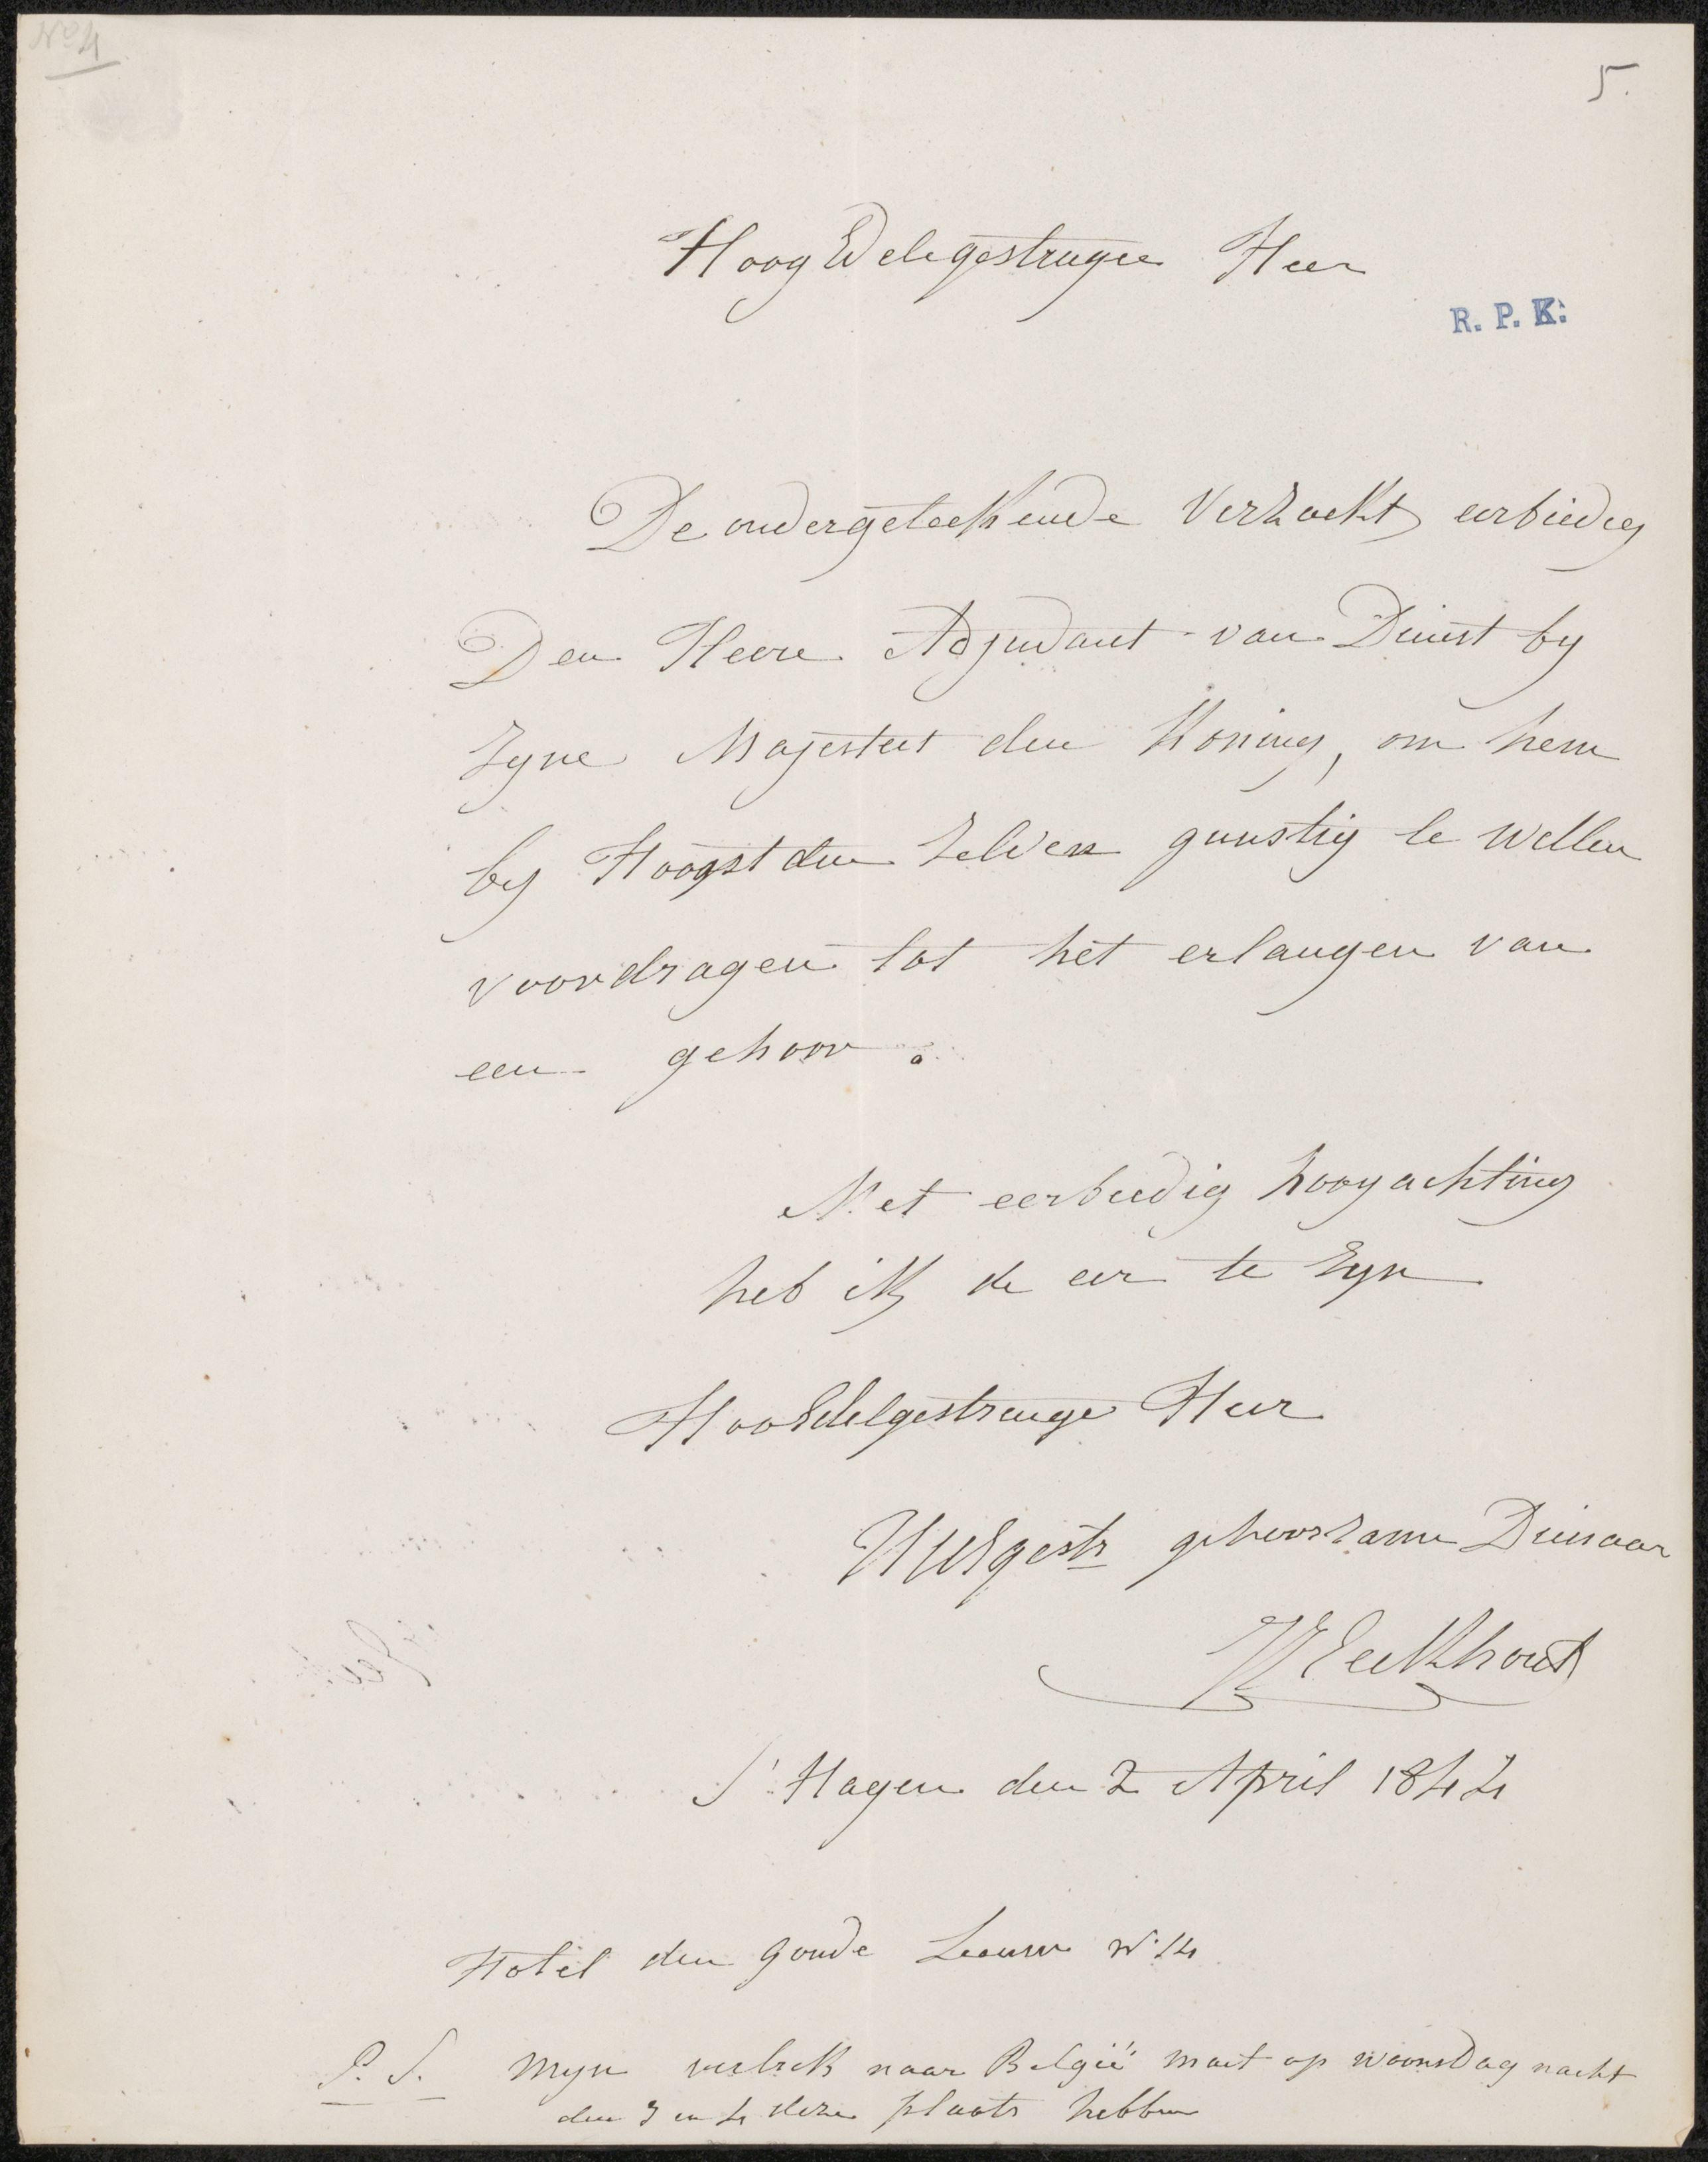 No 4
5.
Hoog Edelegestrenge Heer
R. P. K.
De ondergeteekende Verzoekt eerbiedig
Den Heere Adjudant van Dienst by
Zyne Majesteit den Koning, om hem
by Hoogst den Zelven gunstig te willen
voordragen tot het erlangen van
een gehoor.
Met eerbiedig hoogachting
heb ik de eer te Zyn
HooEdelgestrenge Heer
gehoorzame Dienaar
Eeckhout
S' Hagen den 2 April 1844
Hotel den Goude Leeuw No 14
P. S. Myn vertrek naar België moet op woensdag nacht
den 3 en 4 dezer plaats hebben